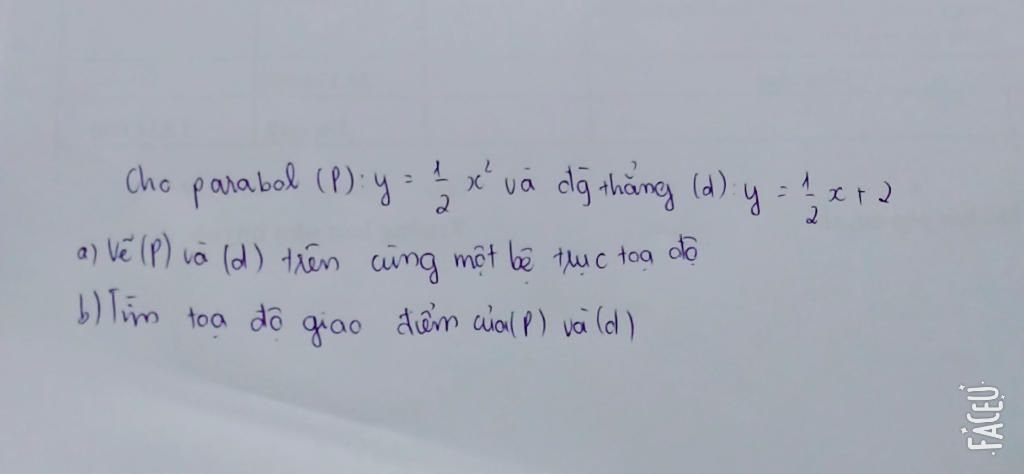 Cho parabol (P): y = 1/2 x² và đg thẳng (d): y = 1/2 x + 2
a) Vẽ (P) và (d) trên cùng một hệ trục toạ độ
b) Tìm toạ độ giao điểm của (P) và (d)
FACEU